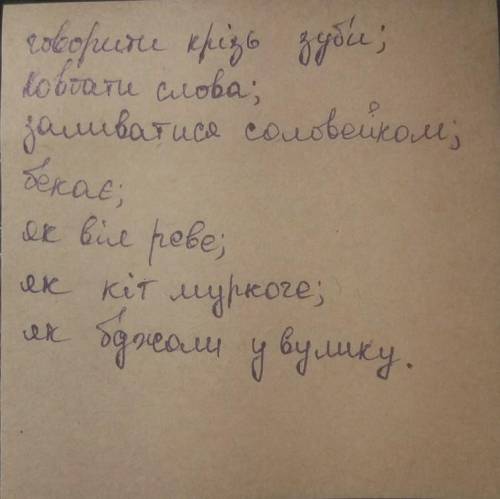 говорити крізь зуби;
ковтати слова;
заливатися соловейком;
бекає;
як віл реве;
як кіт муркоче;
як бджоли у вулику.